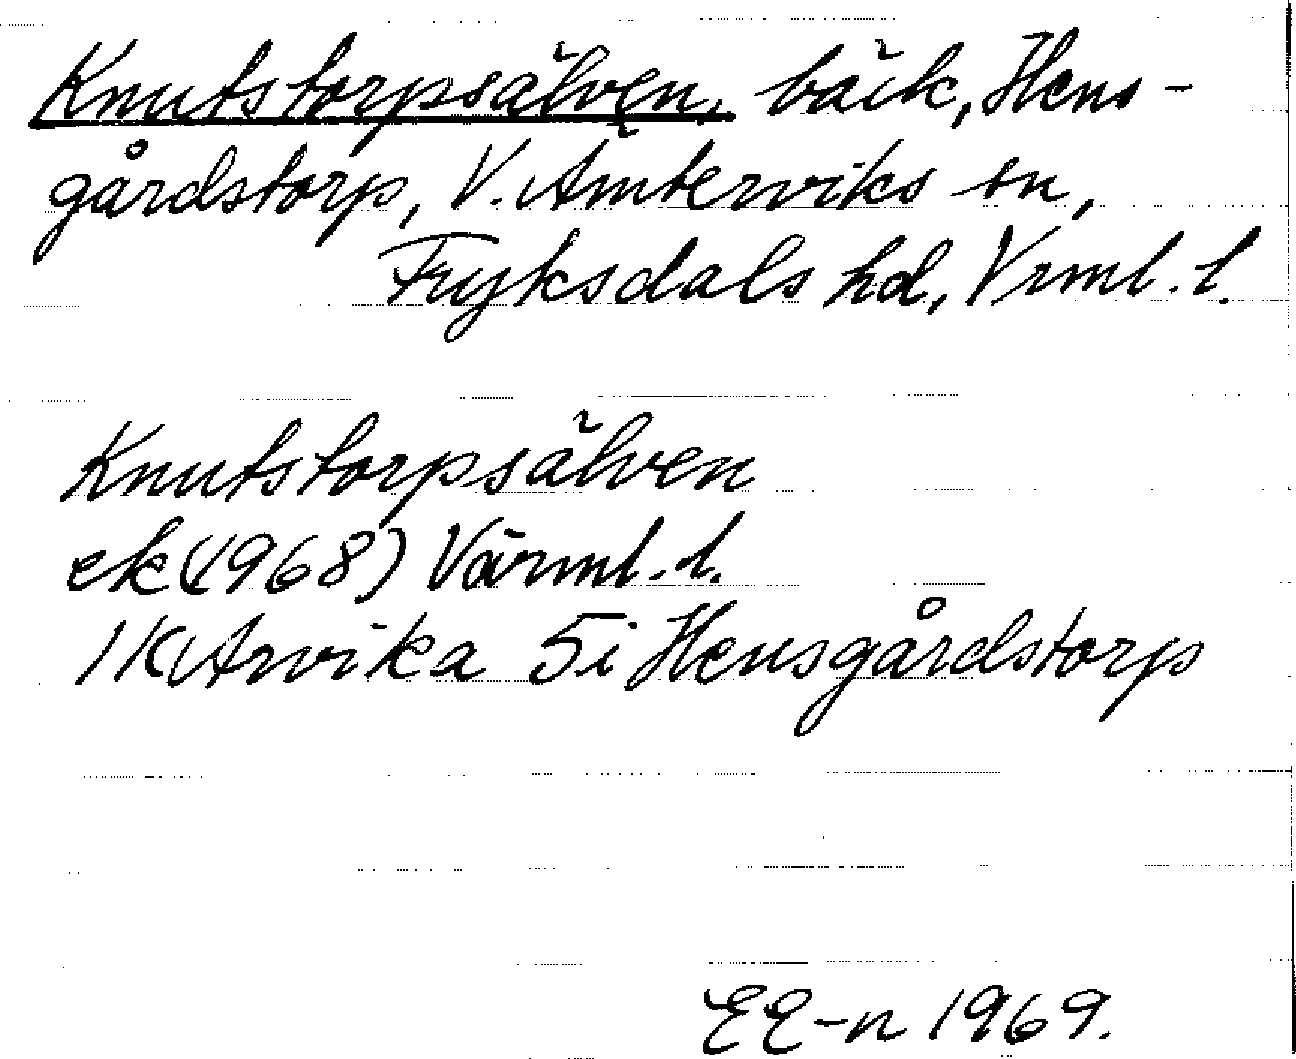 Knutstorpsälven, bäck, Hens-
gårdstorp, V. Ämterviks sn,
Fryksdals hd, Vrml. l.
Knutstorpsälven
ek (1968) Värml. l.
1K Arvika 5i Hensgårdstorp
EE-n 1969.